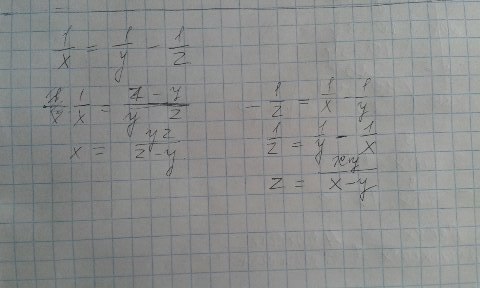 1/x = 1/y - 1/z
1/x = z - y / y z
x = yz / z - y
- 1/z = 1/x - 1/y
1/z = 1/y - 1/x
z = xy / x - y